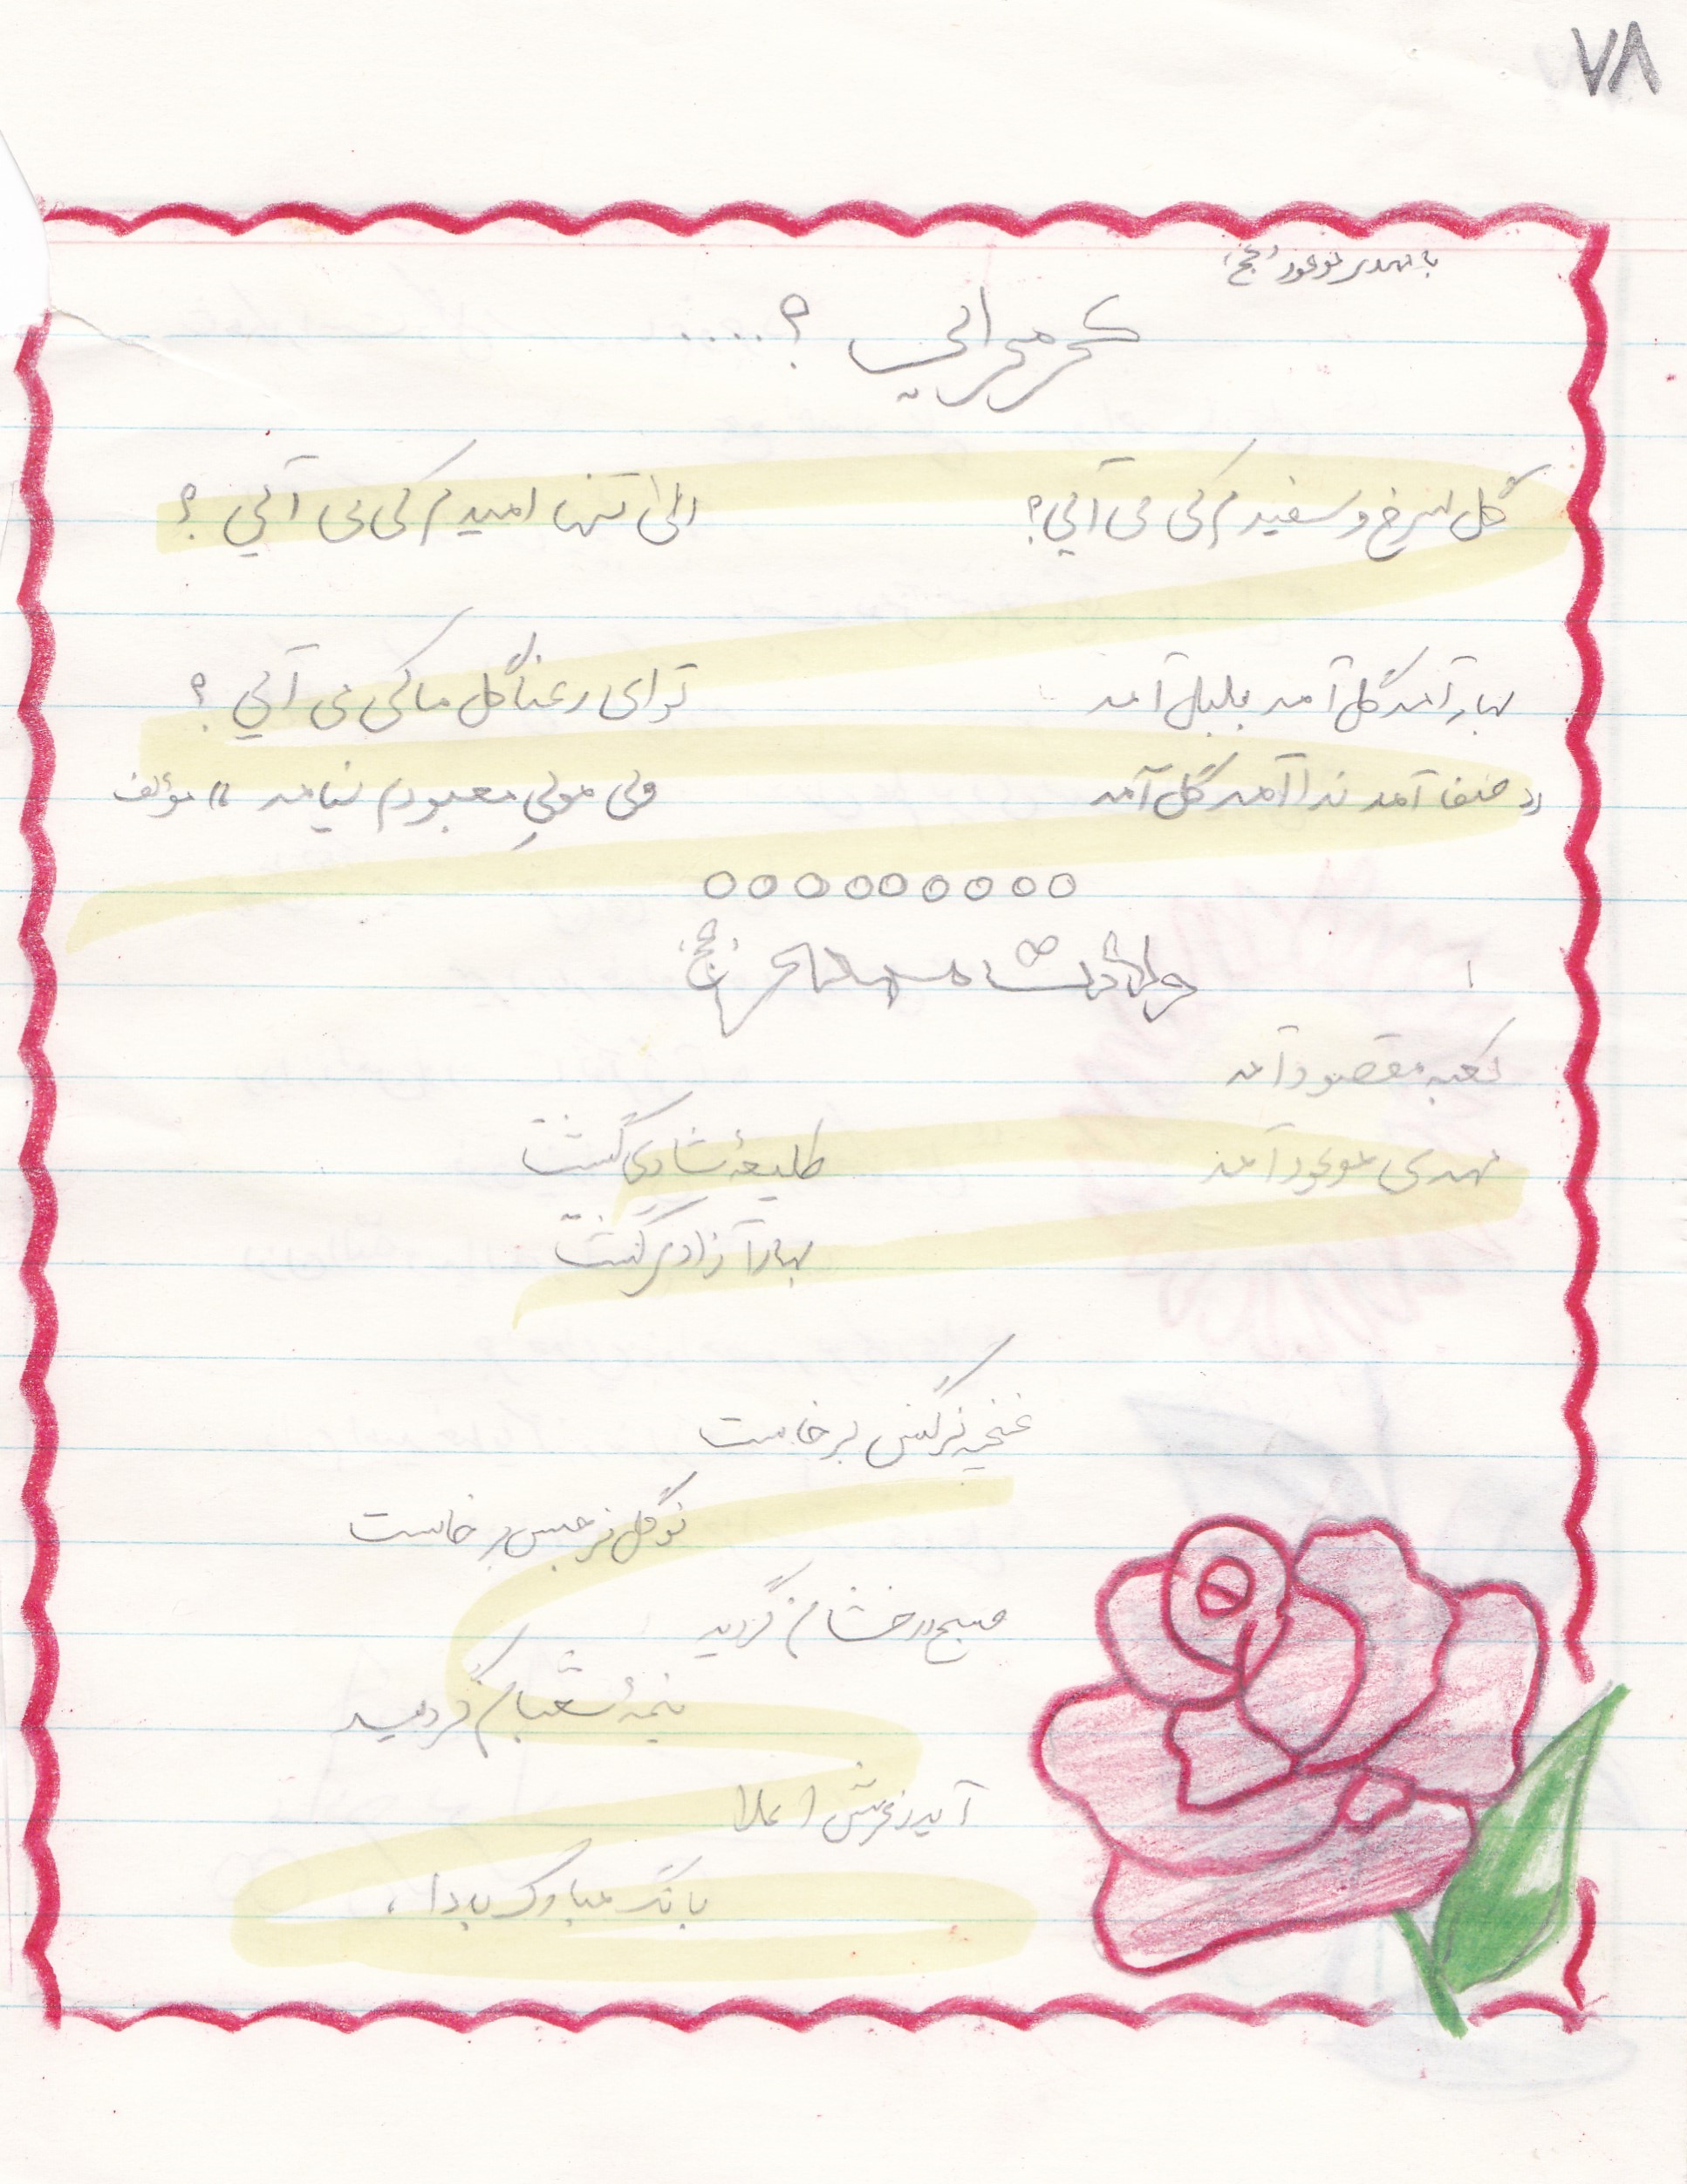 ۷۸
با مهدی موعود (عج)
کی می آیی ؟ .....
گل سرخ و سفیدم کی می آیی؟ الا تنها امیدم کی می آیی ؟
بهار آمد گل آمد بلبل آمد تو ای رعنا گل ما کی می آیی ؟
«صفا آمد ندا آمد گل آمد ولی مولیِ معبودم نیامد» مؤلف
ooooooooo
ولادت امام مهدی (عج)
کعبه مقصود آمد
مهدی موعود آمد طلیعهٔ شادی گشت
بهار آزادی گشت
غنچه نرگس برخاست
نوگل نرجس برخاست
صبح درخشان گردید
نیمهٔ شعبان گردید
آید ز عرش اعلا
بانگ مبارک بادا ،